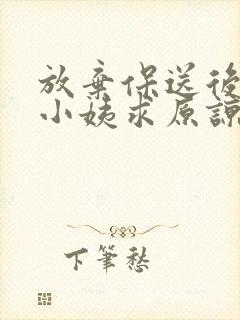 放棄保送後
小姨求原諒
下筆愁